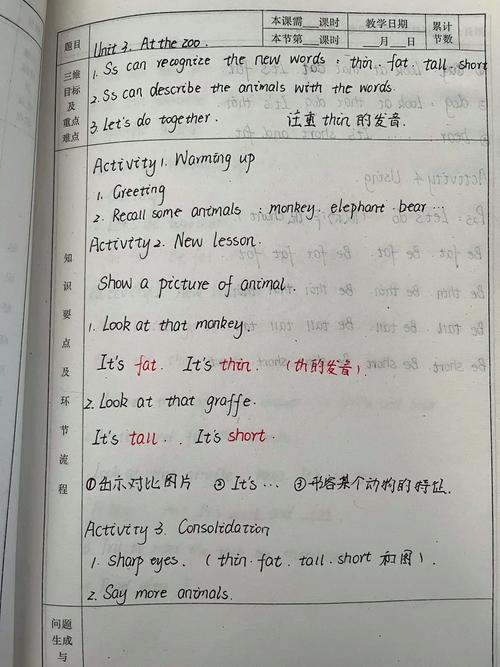 题目
Unit 3. At the zoo.
本课需___课时
本节第___课时
教学日期
月 日
累计节数
三维目标及重点难点
1. Ss can recognize the new words: thin. fat. tall. short
2. Ss can describe the animals with the words.
3. Let's do together. 注重 thin 的发音.
知识要点及环节流程
Activity 1. Warming up
1. Greeting
2. Recall some animals : monkey. elephant. bear ...
Activity 2. New lesson.
Show a picture of animal.
1. Look at that monkey.
It's fat. It's thin. (th的发音).
2. Look at that graffe.
It's tall. It's short.
①出示对比图片 ②It's ... ③形容某个动物的特征.
Activity 3. Consolidation
1. sharp eyes. (thin. fat. tall. short 和图).
2. Say more animals.
问题生成与